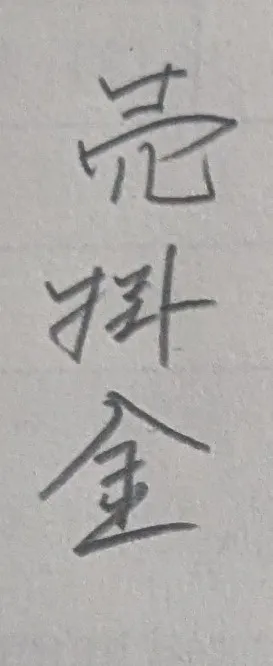 売掛金